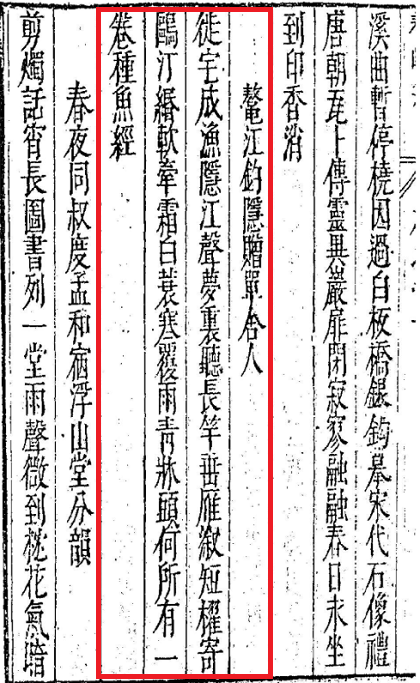 溪曲暫停橈因過白板橋銀鉤摹宋代石像禮
唐朝瓦卜傳靈異巖扉閉寂寥融融春日永坐
到印香消
鼇江釣隱贈單舍人
徙宇成漁隱江聲夢裏聽長竿垂雁漵短櫂寄
鷗汀緡軟牽霜白蓑寒覆雨青牀頭何所有一
卷種魚經
春夜同叔度孟和宿浮山堂分韻
剪燭話宵長圖書列一堂雨聲微到枕花氣暗